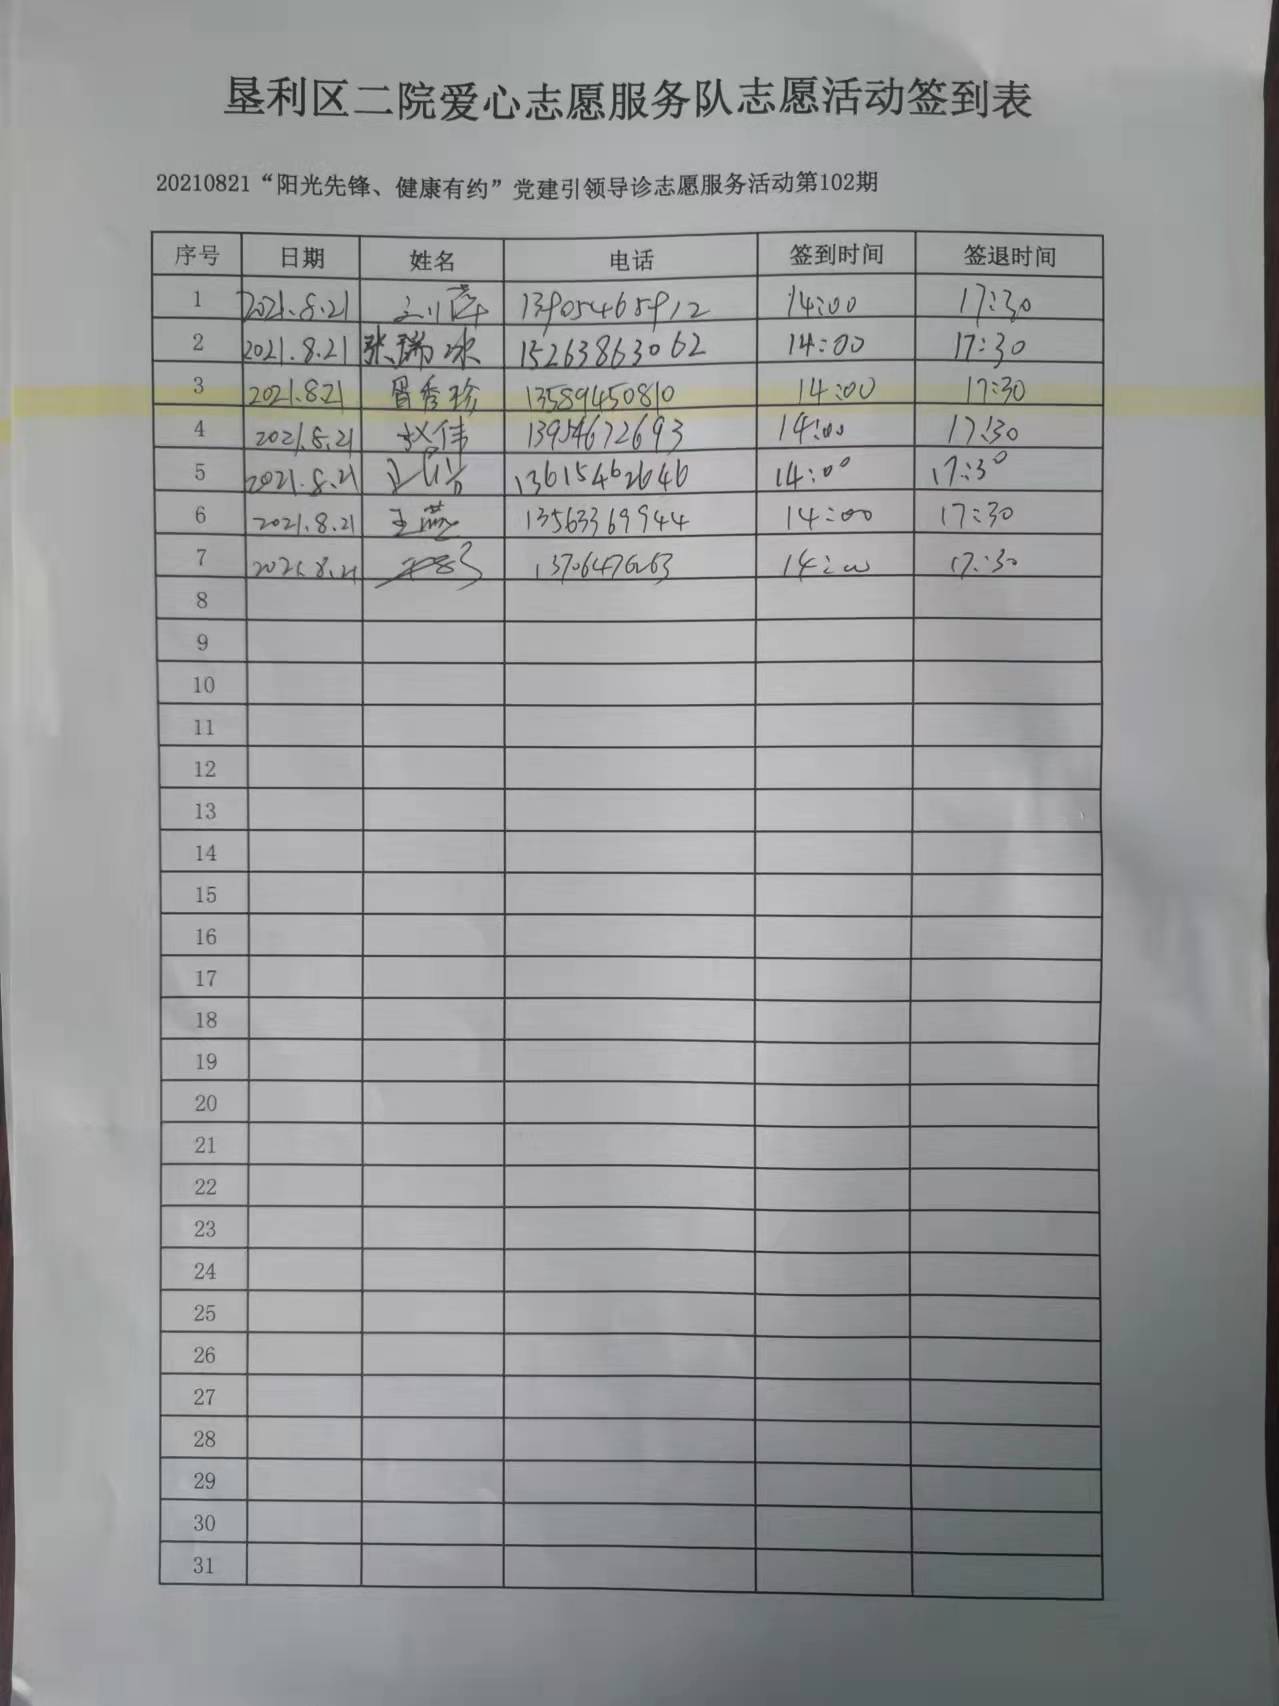 垦利区二院爱心志愿服务队志愿活动签到表
20210821“阳光先锋、健康有约”党建引领导诊志愿服务活动第102期
序号 日期 姓名 电话 签到时间 签退时间
1 2021.8.21 13905465912 14:00 17:30
2 2021.8.21 张瑞冰 15263863062 14:00 17:30
3 2021.8.21 胥秀珍 13589450810 14:00 17:30
4 2021.8.21 赵伟 13954672693 14:00 17:30
5 2021.8.21 13615462646 14:00 17:30
6 2021.8.21 王燕 13563369944 14:00 17:30
7 2021.8.21 14:00 17:30
8
9
10
11
12
13
14
15
16
17
18
19
20
21
22
23
24
25
26
27
28
29
30
31